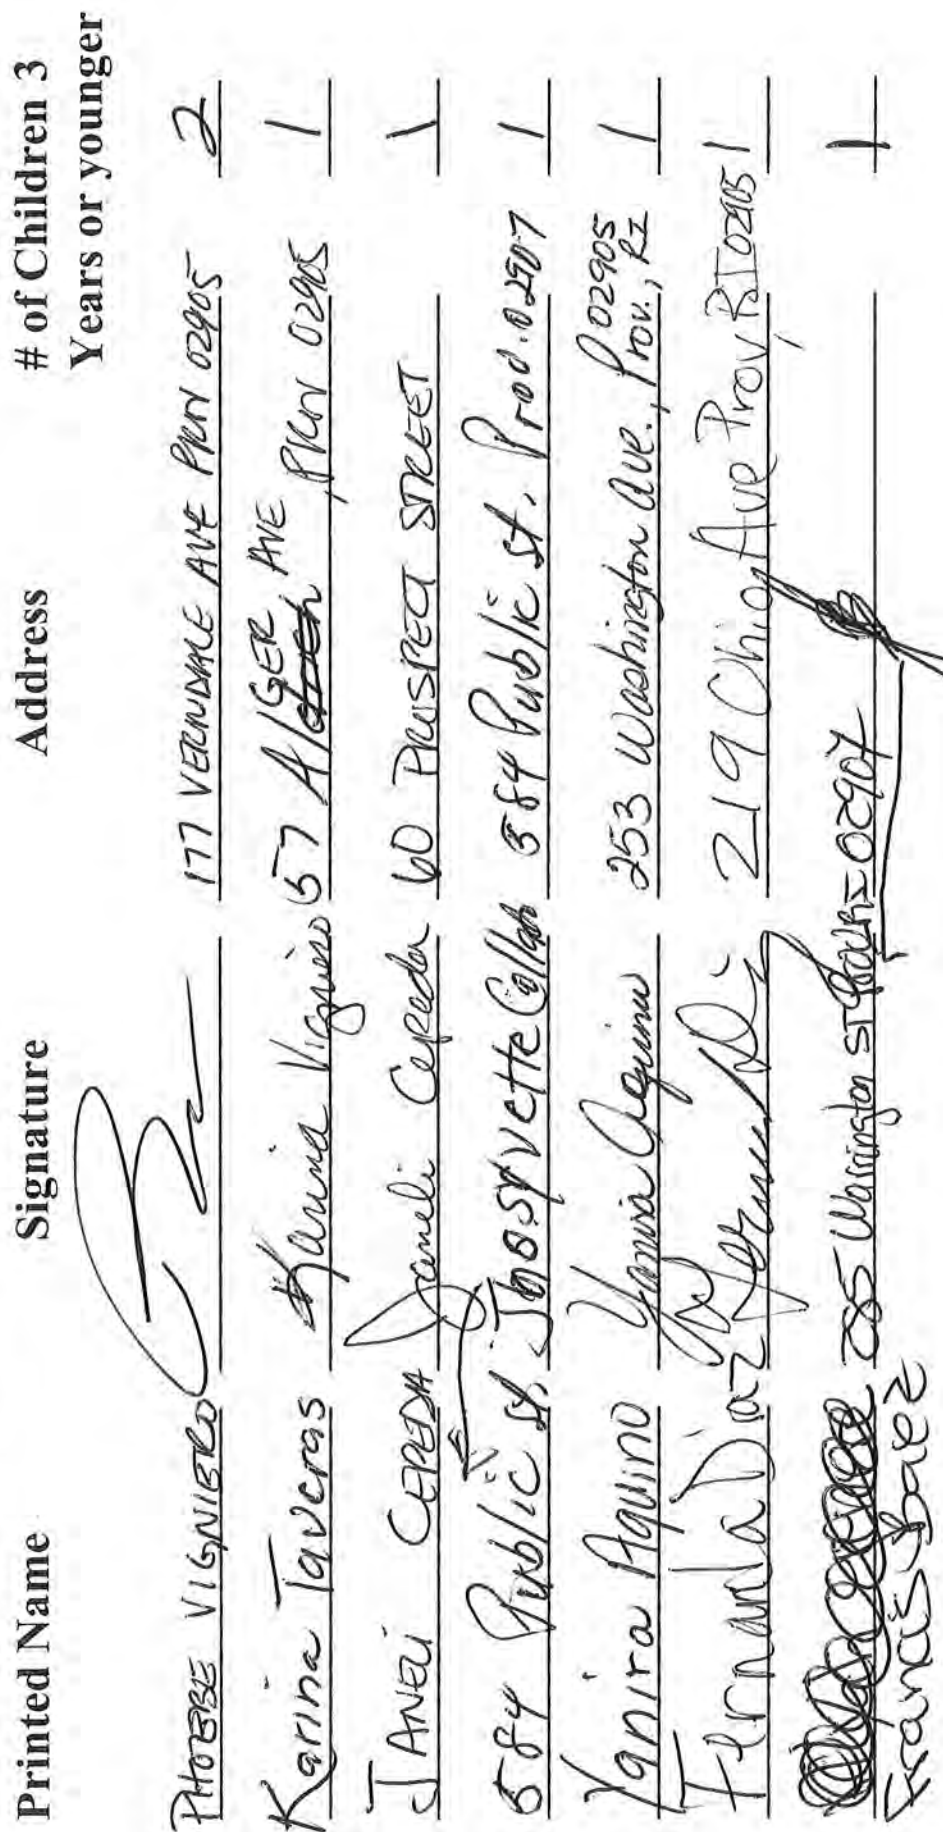 Printed Name Signature Address # of Children 3 Years or younger
PHOEBE VIGNIERO 177 VERNDALE AVE PROV 02905 2
Karina Taveras Karina Vigniero 57 Alger AVE PROV 02905 1
JANELI CEPEDA Janeli Cepeda 60 PROSPECT STREET 1
584 Public st. 584 Public st. Prod. 02907 1
Yanira Aquino Yanira Aquino 253 Washington Ave., Prov., RI 02905 1
Fernanda Diaz 219 Ohio Ave Prov, RI 02905 1
85 Warrington st 02907 1
Francis baez